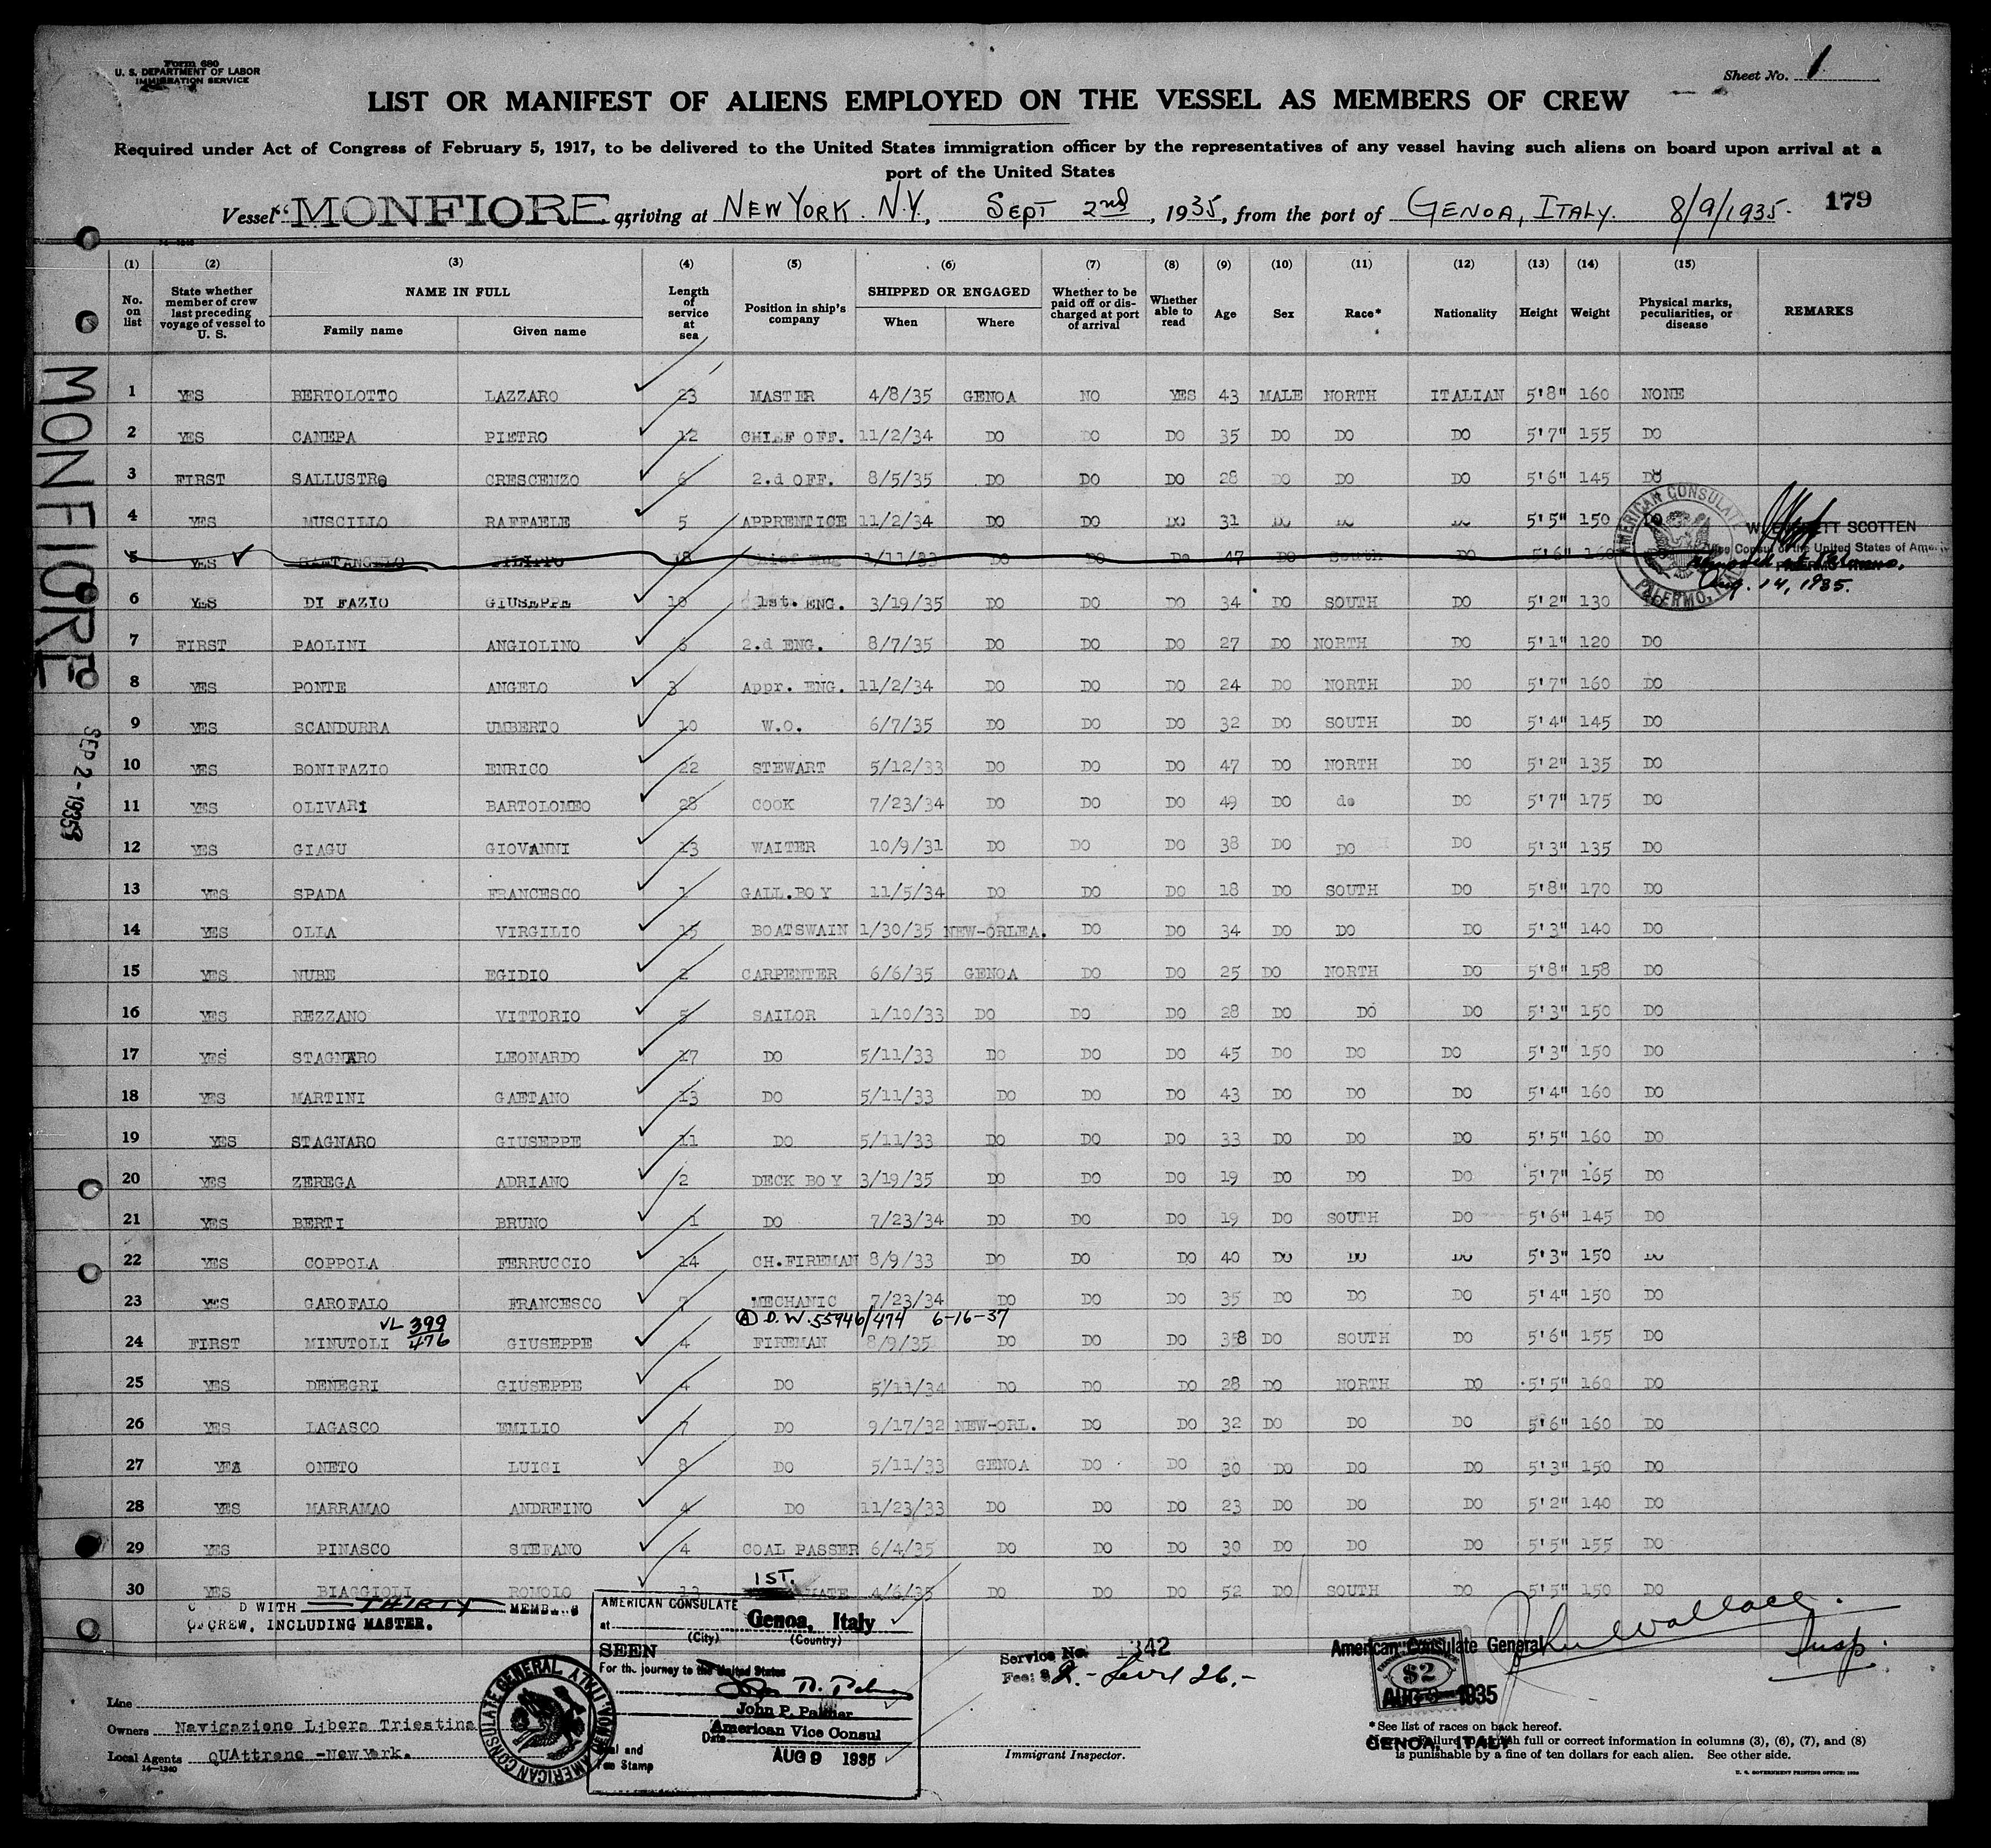 Form 680
U. S. DEPARTMENT OF LABOR
IMMIGRATION SERVICE
Sheet No. 1
LIST OR MANIFEST OF ALIENS EMPLOYED ON THE VESSEL AS MEMBERS OF CREW
Required under Act of Congress of February 5, 1917, to be delivered to the United States immigration officer by the representatives of any vessel having such aliens on board upon arrival at a
port of the United States
Vessel "MONFIORE" arriving at NEW YORK. N.Y., SEPT 2nd, 1935, from the port of GENOA, ITALY. 8/9/1935. 179
(1) (2) (3) (4) (5) (6) (7) (8) (9) (10) (11) (12) (13) (14) (15)
No. on list State whether member of crew last preceding voyage of vessel to U. S. NAME IN FULL Family name Given name Length of service at sea Position in ship's company SHIPPED OR ENGAGED When Where Whether to be paid off or discharged at port of arrival Whether able to read Age Sex Race* Nationality Height Weight Physical marks, peculiarities, or disease REMARKS
1 YES BERTOLOTTO LAZZARO 23 MASTER 4/8/35 GENOA NO YES 43 MALE NORTH ITALIAN 5'8" 160 NONE
2 YES CANEPA PIETRO 12 CHIEF OFF. 11/2/34 DO DO DO 35 DO DO DO 5'7" 155 DO
3 FIRST SALLUSTRo CRESCENZO 6 2.d OFF. 8/5/35 DO DO DO 28 DO DO DO 5'6" 145 DO
4 YES MUSCILLO RAFFAELE 5 APPRENTICE 11/2/34 DO DO DO 31 DO DO DO 5'5" 150 DO
5 YES SANTANGELO FILIPPO 18 Chief Eng 1/11/33 DO DO Do 47 DO South DO 5'6" 160
6 YES DI FAZIO GIUSEPPE 10 1st. ENG. 3/19/35 DO DO DO 34 DO SOUTH DO 5'2" 130 DO
7 FIRST PAOLINI ANGIOLINO 6 2.d ENG. 8/7/35 DO DO DO 27 DO NORTH DO 5'1" 120 DO
8 YES PONTE ANGELO 3 Appr. ENG. 11/2/34 DO DO DO 24 DO NORTH DO 5'7" 160 DO
9 YES SCANDURRA UMBERTO 10 W.O. 6/7/35 DO DO DO 32 DO SOUTH DO 5'4" 145 DO
10 YES BONIFAZIO ENRICO 22 STEWART 5/12/33 DO DO DO 47 DO NORTH DO 5'2" 135 DO
11 YES OLIVARi BARTOLOMEO 28 COOK 7/23/34 DO DO DO 49 DO do DO 5'7" 175 DO
12 YES GIAGU GIOVANNI 13 WAITER 10/9/31 DO DO DO 38 DO DO DO 5'3" 135 DO
13 YES SPADA FRANCESCO 1 GALL.BOY 11/5/34 DO DO DO 18 DO SOUTH DO 5'8" 170 DO
14 YES OLLA VIRGILIO 15 BOATSWAIN 1/30/35 NEW-ORLEA. DO DO 34 DO DO DO 5'3" 140 DO
15 YES NUBE EGIDIO 2 CARPENTER 6/6/35 GENOA DO DO 25 DO NORTH DO 5'8" 158 DO
16 YES REZZANO VITTORIO 5 SAILOR 1/10/33 DO DO DO 28 DO DO DO 5'3" 150 DO
17 YES STAGNARO LEONARDO 17 DO 5/11/33 DO DO DO 45 DO DO DO 5'3" 150 DO
18 YES MARTINI GAETANO 13 DO 5/11/33 DO DO DO 43 DO DO DO 5'4" 160 DO
19 YES STAGNARO GIUSEPPE 11 DO 5/11/33 DO DO DO 33 DO DO DO 5'5" 160 DO
20 YES ZEREGA ADRIANO 2 DECK BOY 3/19/35 DO DO DO 19 DO DO DO 5'7" 165 DO
21 YES BERTI BRUNO 1 DO 7/23/34 DO DO DO 19 DO SOUTH DO 5'6" 145 DO
22 YES COPPOLA FERRUCCIO 14 CH.FIREMAN 8/9/33 DO DO DO 40 DO DO DO 5'3" 150 DO
23 YES GAROFALO FRANCESCO 7 MECHANIC 7/23/34 DO DO DO 35 DO DO DO 5'4" 150 DO
VL 399/476 (A) D.W. 55946/474 6-16-37
24 FIRST MINUTOLI GIUSEPPE 4 FIREMAN 8/9/35 DO DO DO 38 DO SOUTH DO 5'6" 155 DO
25 YES DENEGRI GIUSEPPE 4 DO 5/11/34 DO DO DO 28 DO NORTH DO 5'5" 160 DO
26 YES LAGASCO EMILIO 7 DO 9/17/32 NEW-ORL. DO DO 32 DO DO DO 5'6" 160 DO
27 YES ONETO LUIGI 8 DO 5/11/33 GENOA DO DO 30 DO DO DO 5'3" 150 DO
28 YES MARRAMAO ANDREINO 4 DO 11/23/33 DO DO DO 23 DO DO DO 5'2" 140 DO
29 YES PINASCO STEFANO 4 COAL PASSER 6/4/35 DO DO DO 30 DO DO DO 5'5" 155 DO
30 YES BIAGGIOLI ROMOLO 13 1ST. MATE 4/6/35 DO DO DO 52 DO SOUTH DO 5'5" 150 DO
AMERICAN CONSULATE
PALERMO, ITALY
W. EVERETT SCOTTEN
Vice Consul of the United States of America
Aug. 14, 1935.
MONFIORE
SEP 2 - 1935
D WITH THIRTY MEMBERS
OF CREW, INCLUDING MASTER.
AMERICAN CONSULATE
at Genoa, Italy
(City) (Country)
SEEN
For the journey to the United States
John P. Palmer
American Vice Consul
Date AUG 9 1935
Seal and
Fee Stamp
AMERICAN CONSULATE GENERAL GENOA, ITALY
Service No. 1342
Fee: $ 2.-
Immigrant Inspector.
American Consulate General
$2
AUG 9 1935
GENOA, ITALY
John Wallace.
Insp.
Line
Owners Navigazione Libera Triestina
Local Agents QUAttrone -NewYork.
14—1240
* See list of races on back hereof.
Failure to furnish full or correct information in columns (3), (6), (7), and (8)
is punishable by a fine of ten dollars for each alien. See other side.
U. S. GOVERNMENT PRINTING OFFICE